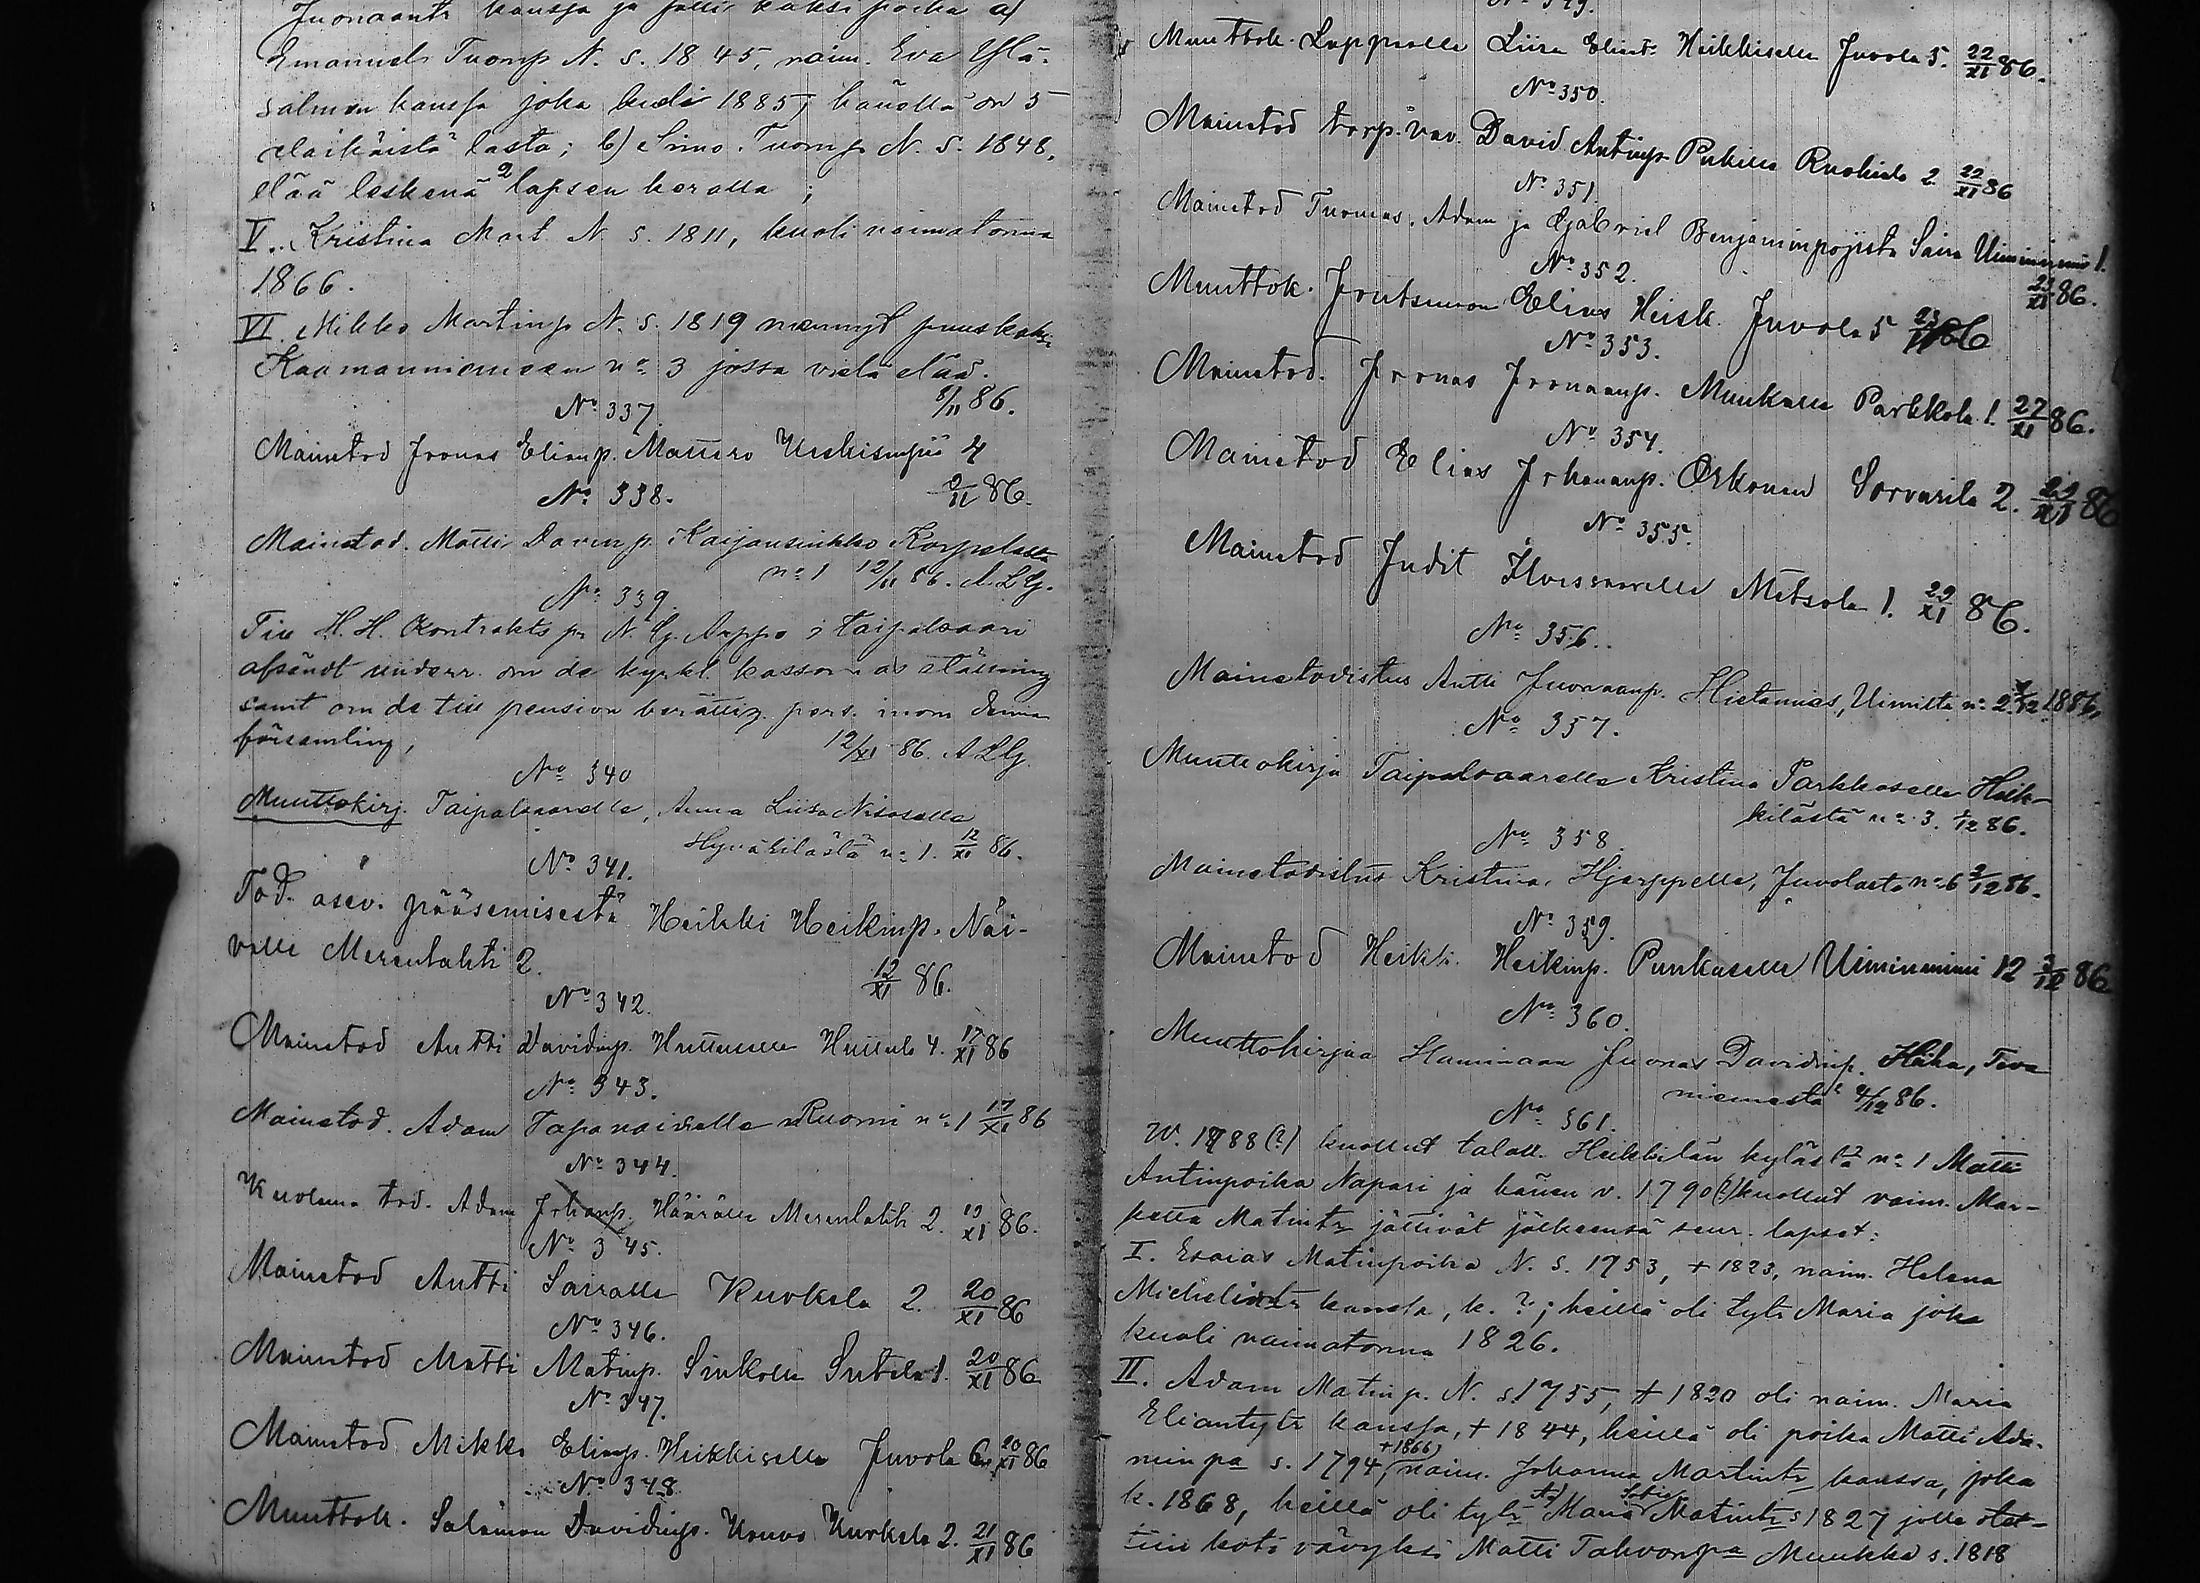 Juonaantr kanssa ja jätti kaksi poika a)
Emanuel Tuomp N. s. 1845, naim. Eva Ylä-
salmen kanssa joka kuoli 1885, hänellä on 5
alaikäistä lasta; b) Simo Tuomp N. s. 1848,
elää leskenä 2 lapsen keralla;
V. Kristina Mart. N. s. 1811, kuoli naimatonna
1866.
VI. Mikko Martinp N. s. 1819 mennyt
no 3 jossa vielä elää.
No 337. 8/11 86.
Mainetod Joonas Elianp. 4
No 338. 9/11 86.
Mainetod. Matti Davinp. Kaijansinkko Korpelasta
no 1 12/11 86. A. L. G.
No 339.
Till H. H. Kontrakts pr N. G. Arppe i Taipalsaari
afsändt underr. om de kyrkl. kassornas ställning
samt om de till pension berättig. pers. inom denna
församling, 12/XI 86. A L G.
No 340
Muuttokirj. Taipalsaarelle, Anna Liisa Nisoselle
no 1. 12/XI 86.
No 341.
Tod. asev. pääsemisestä Heikki Heikinp. Näi-
välle Merenlahti 2. 12/XI 86.
No 342.
Mainetod Antti Davidinp. Huttuselle Huttula 4. 17/XI 86
No 343.
Mainetod. Adam Tapanaiselle Ruomi no 1 17/XI 86
No 344.
Kuolema tod. Adam Johanp. Häärälle Merenlahti 2. 19/XI 86.
No 345.
Mainetod Antti Sairalle Kurkela 2. 20/XI 86
No 346.
Mainetod Matti Matinp. Sinkolle Sutela 1. 20/XI 86
No 347.
Mainetod Mikko Elianp. Heikkiselle Juvola 6 20/XI 86
No 348.
Muuttok. Salomon Davidinp. Kurkela 2. 21/XI 86
No 349.
Muuttok. Lappeelle Liisa Eliant. Heikkiselle Juvola 5. 22/XI 86.
No 350.
Mainetod torp. väv. David Antinp. Pukille Ruohiala 2. 22/XI 86
No 351.
Mainetod Tuomas, Adam ja Gabriel Benjaminpojista Saira Uiminiemi 1.
23/XI 86.
No 352.
Muuttok. Joutsenoon Elias Heisk. Juvola 5 23/11 86
No 353.
Mainetod. Joonas Joonaanp. Muukalle Parkkola 1. 27/XI 86.
No 354.
Mainetod Elias Johananp. Orkonen Sorvarila 2. 29/XI 86
No 355.
Mainetod Judit Ilvessuorelle Metsola 1. 29/XI 86.
No 356.
Mainetodistus Antti Juonaanp. Hietamies, Uimilta no 2. /12 1886.
No 357.
Muuttokirja Taipalsaarelle Kristina Parkkoselle Heik-
kilästä no 3. /12 86.
No 358.
Mainetodistus Kristina Hjerppelle, Juvolasta no 6 3/12 86.
No 359.
Mainetod Heikki Heikinp. Punkaselle Uiminiemi 12 3/12 86
No 360.
Muuttokirjaa Haminaan Juonas Davidinp. Häkä,
niemestä 4/12 86.
No 361.
W. 1788 (?) kuollut talall. Heikkilän kylästä no 1 Matti
Antinpoika Napari ja hänen v. 1790(?) kuollut vaim. Mar-
ketta Matintr jättivät jälkeensä seur. lapset:
I. Esaias Matinpoika N. s. 1753, + 1823, naim. Helena
kanssa, k. ?; heillä oli tytr Maria joka
kuoli naimatonna 1826.
II. Adam Matinp. N. s 1755, + 1820 oli naim. Maria
Eliantytr kanssa, + 1844, heillä oli poika Matti Ada-
minpa s. 1794, (+1866) naim. Johanna Martintr kanssa, joka
k. 1868, heillä oli tytr Maria Sofia Matintr s 1827 jolle otet-
tiin koti vävyksi Matti Tahvonpa Muukka s. 1818